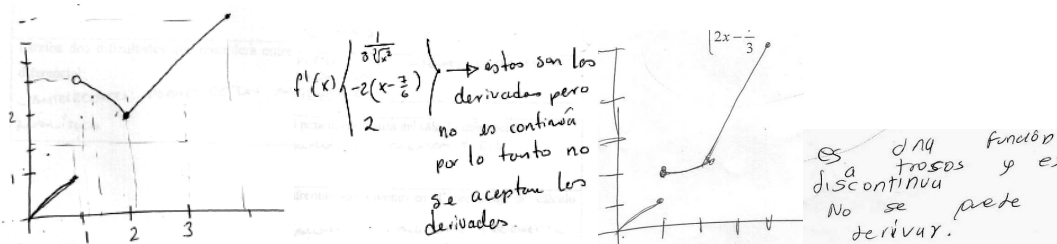 2
1
1 2 3
f'(x) { 1/(3∛x²)
-2(x-7/6)
2 } → estos son las
derivadas pero
no es continua
por lo tanto no
se aceptan las
derivadas.
2x-
3
es una función
a trosos y es
discontinua
No se puede
derivar.